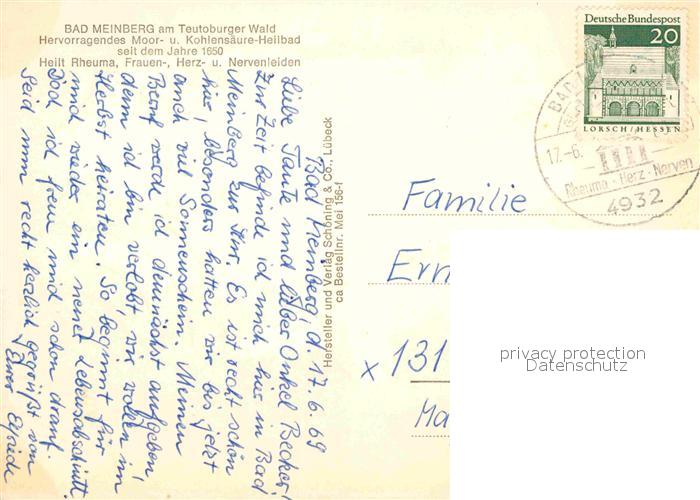 BAD MEINBERG am Teutoburger Wald
Hervorragendes Moor- u. Kohlensäure-Heilbad
seit dem Jahre 1650
Heilt Rheuma, Frauen-, Herz- u. Nervenleiden
Bad Meinberg, d. 17.6.69
Liebe Tante und lieber Onkel Becker!
Zur Zeit befinde ich mich hier in Bad
Meinberg zur Kur. Es ist recht schön
hier, besonders hatten wir bis jetzt
auch viel Sonnenschein. Meinen
Beruf werde ich demnächst aufgeben,
denn ich bin verlobt, wir wollen im
Herbst heiraten. So beginnt für
mich wieder ein neuer Lebensabschnitt.
Doch ich freue mich schon drauf.
Seid nun recht herzlich gegrüßt von
Eurer
Hersteller und Verlag Schöning & Co., Lübeck
ca Bestellnr. Mei 156-f
Deutsche Bundespost
20
LORSCH/HESSEN
BAD
17.-6.
Rheuma · Herz · Nerven
4932
Familie
Ern
x 131
Ma
privacy protection
Datenschutz